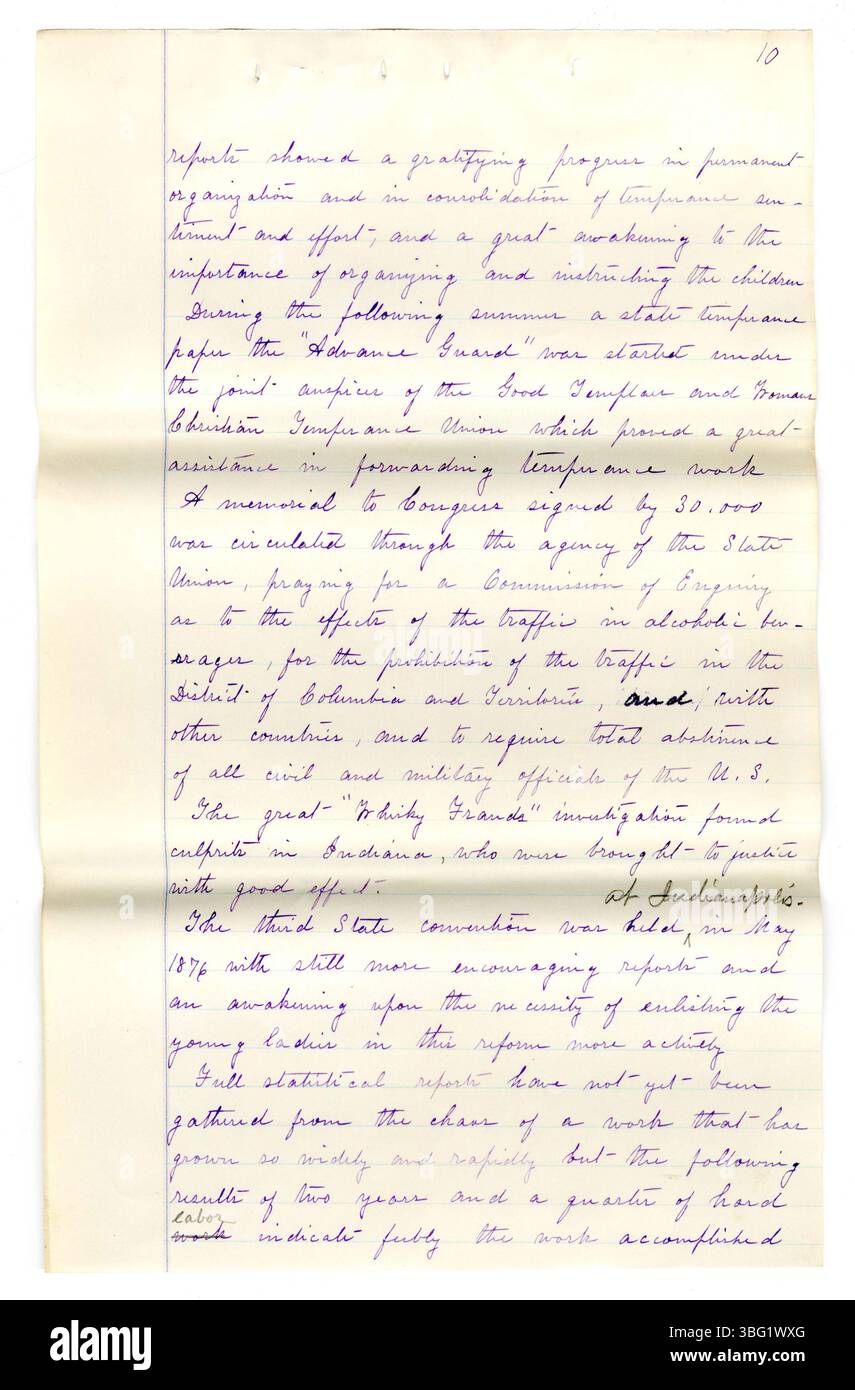 10
reports showed a gratifying progress in permanent
organization and in consolidation of temperance sen-
timent and effort, and a great awakening to the
importance of organizing and instructing the children
During the following summer a state temperance
paper the "Advance Guard" was started under
the joint auspices of the Good Templars and Womans
Christian Temperance Union which proved a great
assistance in forwarding temperance work
A memorial to Congress signed by 30.000
was circulated through the agency of the State
Union, praying for a Commission of Enquiry
as to the effects of the traffic in alcoholic bev-
erages, for the prohibition of the traffic in the
District of Columbia and Territories, and, with
other countries, and to require total abstinence
of all civil and military officials of the U. S.
The great "Whisky Frauds" investigation found
culprits in Indiana, who were brought to justice
with good effect.
at Indianapolis.
The third State convention was held ^ in May
1876 with still more encouraging reports and
an awakening upon the necessity of enlisting the
young ladies in this reform more actively
Full statistical reports have not yet been
gathered from the chaos of a work that has
grown so widely and rapidly but the following
results of two years and a quarter of hard
labor
work indicate feebly the work accomplished
alamy
alamy
Image ID: 3BG1WXG
www.alamy.com